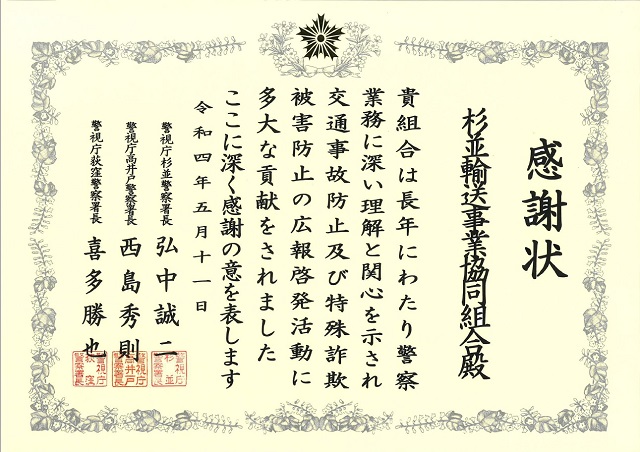 感謝状
杉並輸送事業協同組合殿
貴組合は長年にわたり警察
業務に深い理解と関心を示され
交通事故防止及び特殊詐欺
被害防止の広報啓発活動に
多大な貢献をされました
ここに深く感謝の意を表します
令和四年五月十一日
警視庁杉並警察署長 弘中誠二
警視庁高井戸警察署長 西島秀則
警視庁荻窪警察署長 喜多勝也
警視庁杉並警察署長
警視庁高井戸警察署長
警視庁荻窪警察署長